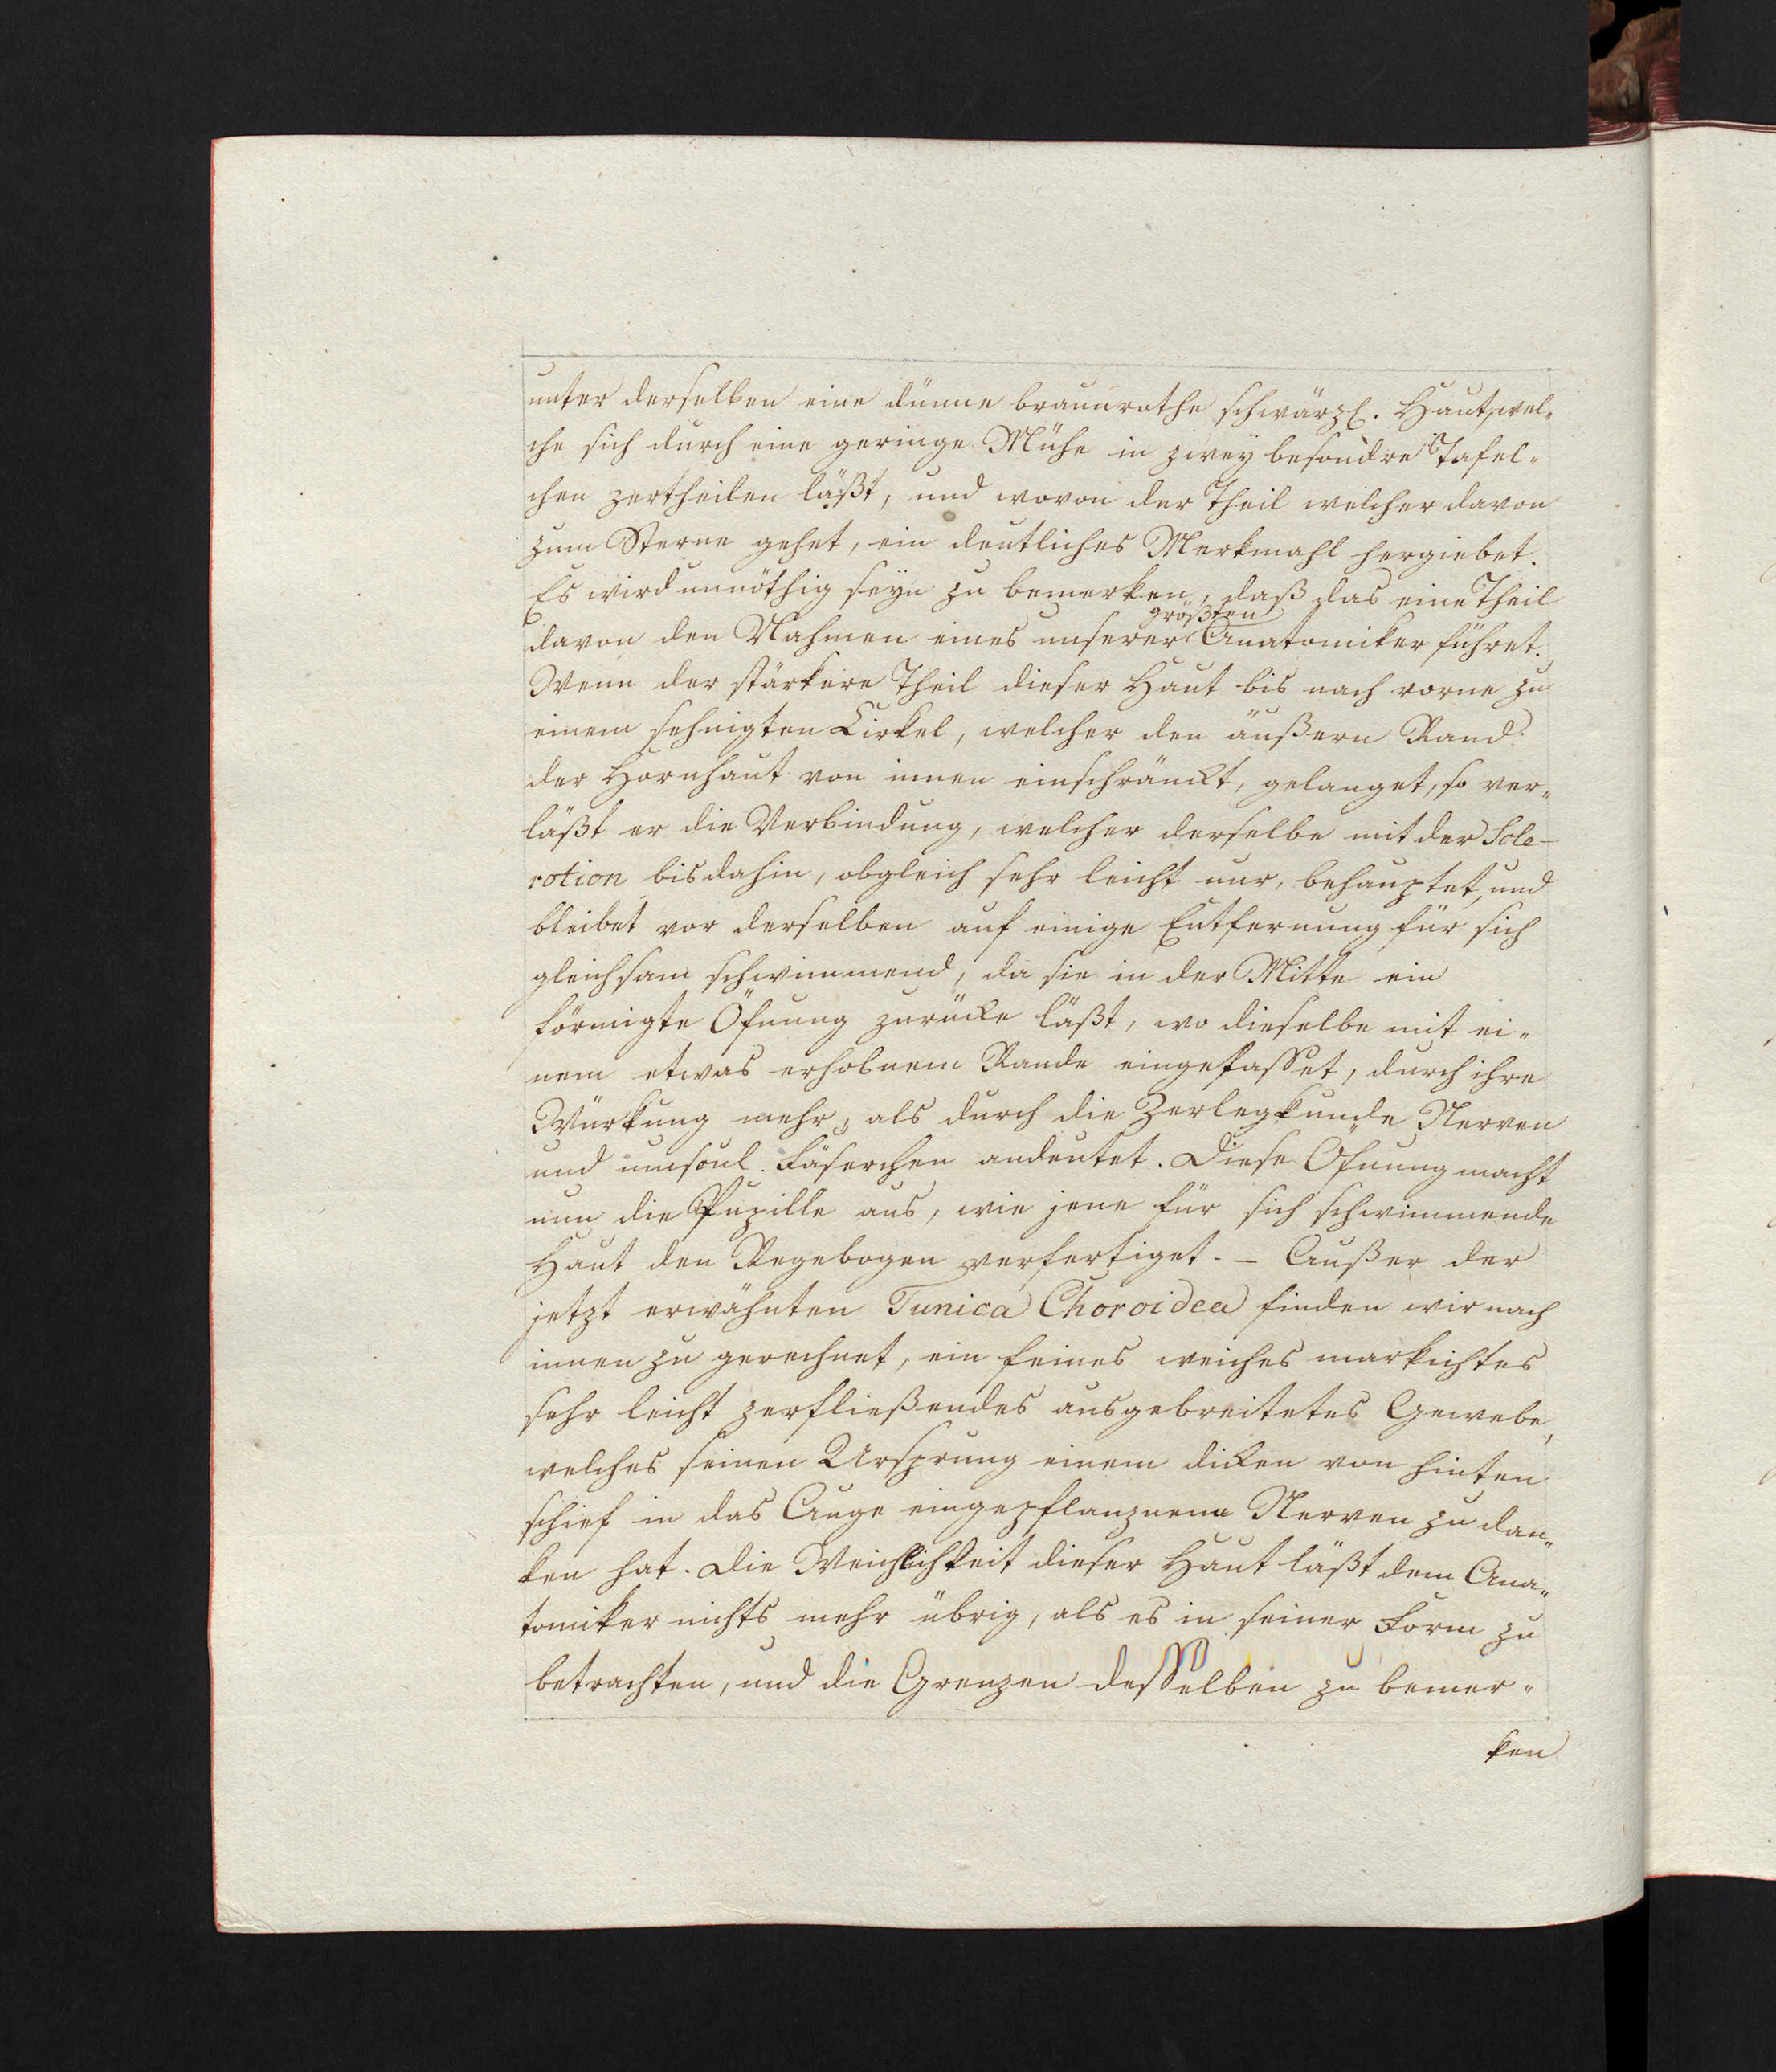 unter derselben eine dünne braunrothe schwärzl. Haut, wel-
che sich durch eine geringe Mühe in zwey besondre Tafel-
chen zertheilen läßt, und wovon der Theil welcher davon
zum Sterne gehet, ein deutliches Merkmahl hergiebet.
Es wird unnöthig seyn zu bemerken, daß das eine Theil
größten
davon den Nahmen eines unserer Anatomiker führet.
Wenn der stärkere Theil dieser Haut bis nach vorne zu
einem sehnigten Cirkel, welcher den äußern Rand
der Hornhaut von innen einschränckt, gelanget, so ver-
läßt er die Verbindung, welcher derselbe mit der Scle-
rotion bis dahin, obgleich sehr leicht nur, behauptet, und
bleibet vor derselben auf einige Entfernung für sich
gleichsam schwimmend, da sie in der Mitte ein
förmigte Öfnung zurücke läßt, wo dieselbe mit ei-
nem etwas erhobnem Rande eingefasset, durch ihre
Würkung mehr, als durch die Zerlegkunde Nerven
und Fäserchen andeutet. Diese Öfnung macht
nun die Pupille aus, wie jene für sich schwimmende
Haut den Regebogen verfertiget. – Außer der
jetzt erwähnten Tunica Choroidea finden wir nach
innen zu gerechnet, ein feines weiches markichtes
sehr leicht zerfließendes ausgebreitetes Gewebe,
welches seinen Ursprung einem dicken von hinten
schief in das Auge eingepflanznem Nerven zu dan-
ken hat. Die Weichlichkeit dieser Haut läßt dem Ana-
tomiker nichts mehr übrig, als es in seiner Form zu
betrachten, und die Grenzen desselben zu bemer-
ken